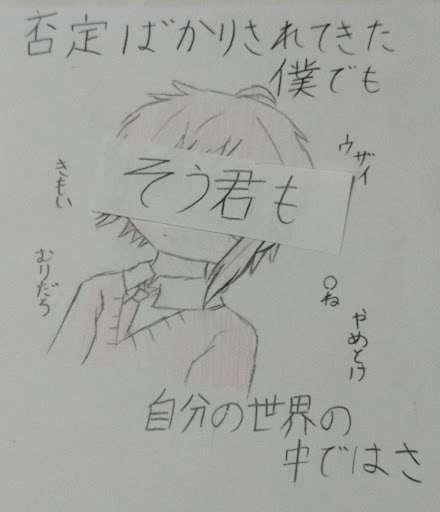 否定ばかりされてきた
僕でも
ウザイ
きもい
そう君も
むりだろ
〇ね
やめとけ
自分の世界の
中ではさ